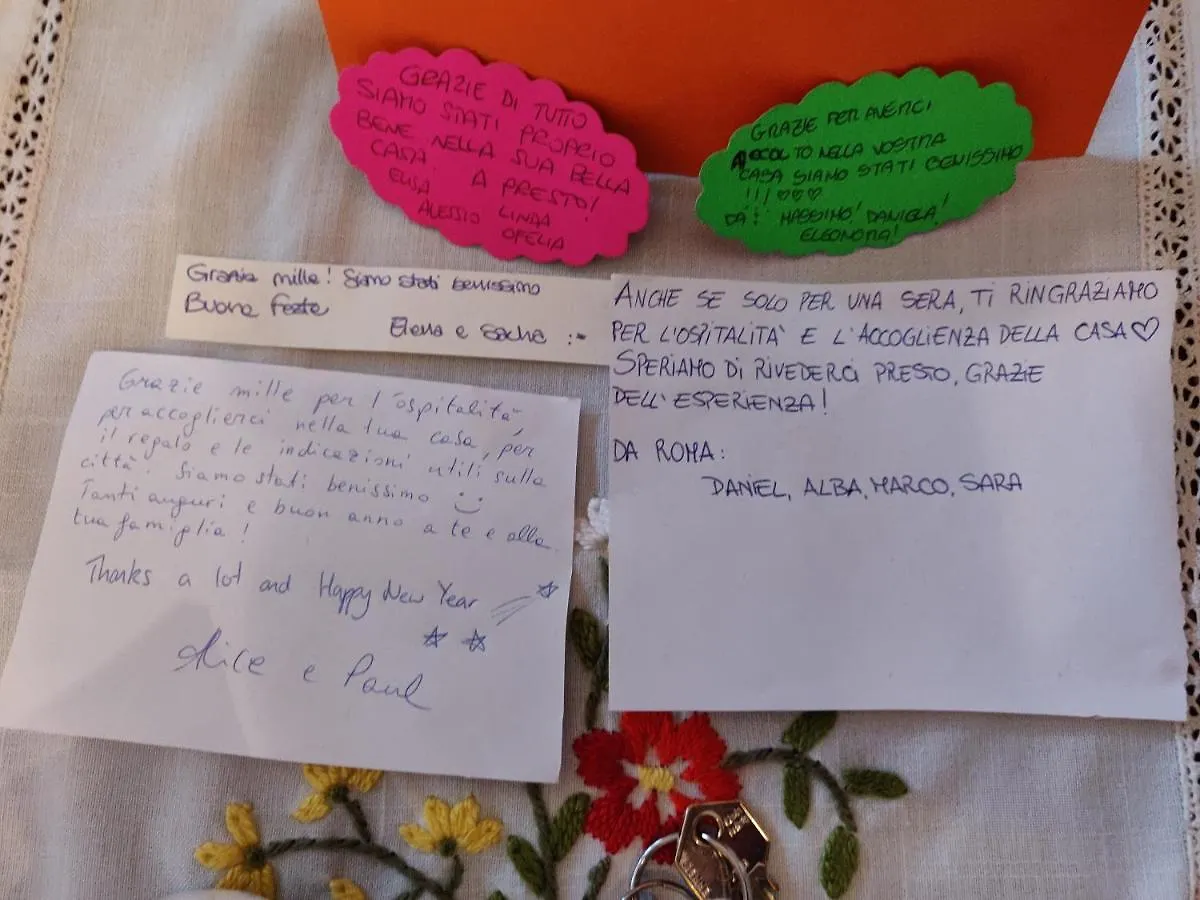 GRAZIE DI TUTTO
SIAMO STATI PROPRIO
BENE NELLA SUA BELLA
CASA A PRESTO!
ELISA
ALESSIO LINDA
OFELIA
GRAZIE PER AVERCI
ACCOLTO NELLA VOSTRA
CASA SIAMO STATI BENISSIMO
!!! ♡♡♡
DA: MASSIMO! DANIELA!
ELEONORA!
Grazie mille! Siamo stati benissimo
Buone Feste
Elena e Sacha :-
ANCHE SE SOLO PER UNA SERA, TI RINGRAZIAMO
PER L'OSPITALITÀ E L'ACCOGLIENZA DELLA CASA ♡
SPERIAMO DI RIVEDERCI PRESTO, GRAZIE
DELL'ESPERIENZA!
DA ROMA:
DANIEL, ALBA, MARCO, SARA
Grazie mille per l'ospitalità,
per accoglierci nella tua casa, per
il regalo e le indicazioni utili sulla
città. Siamo stati benissimo :)
Tanti auguri e buon anno a te e alla
tua famiglia!
Thanks a lot and Happy New Year
Alice e Paul